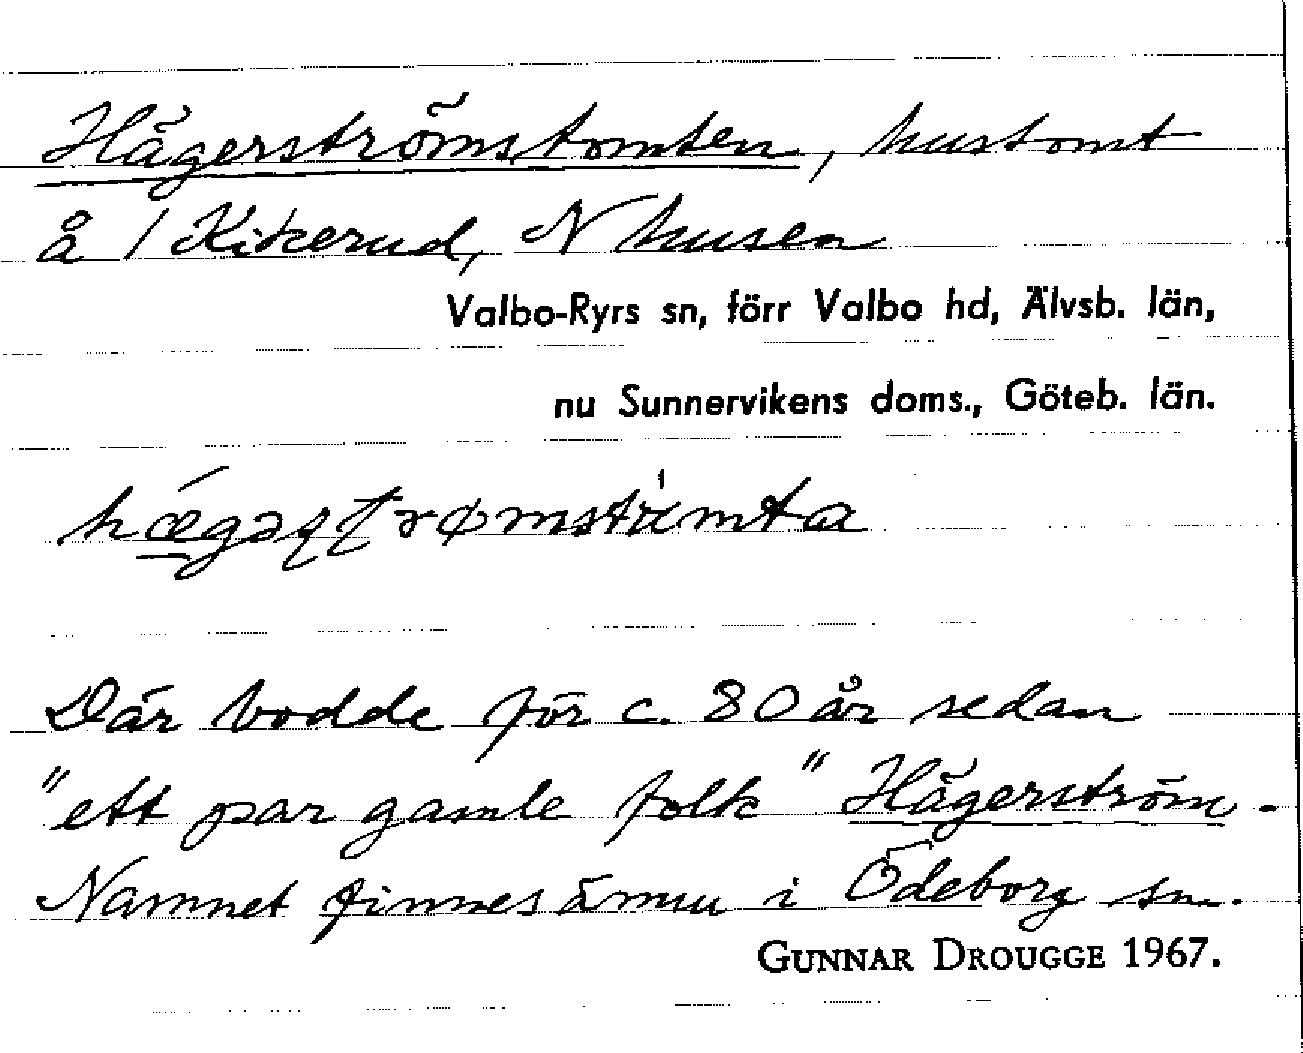 Hägerströmstomten, hustomt
å 1 Kikerud, N husen
Valbo-Ryrs sn, förr Valbo hd, Älvsb. län,
nu Sunnervikens doms., Göteb. län.
Där bodde för c. 80 år sedan
"ett par gamle folk" Hägerström.
Namnet finnes ännu i Ödeborg sn.
GUNNAR DROUGGE 1967.